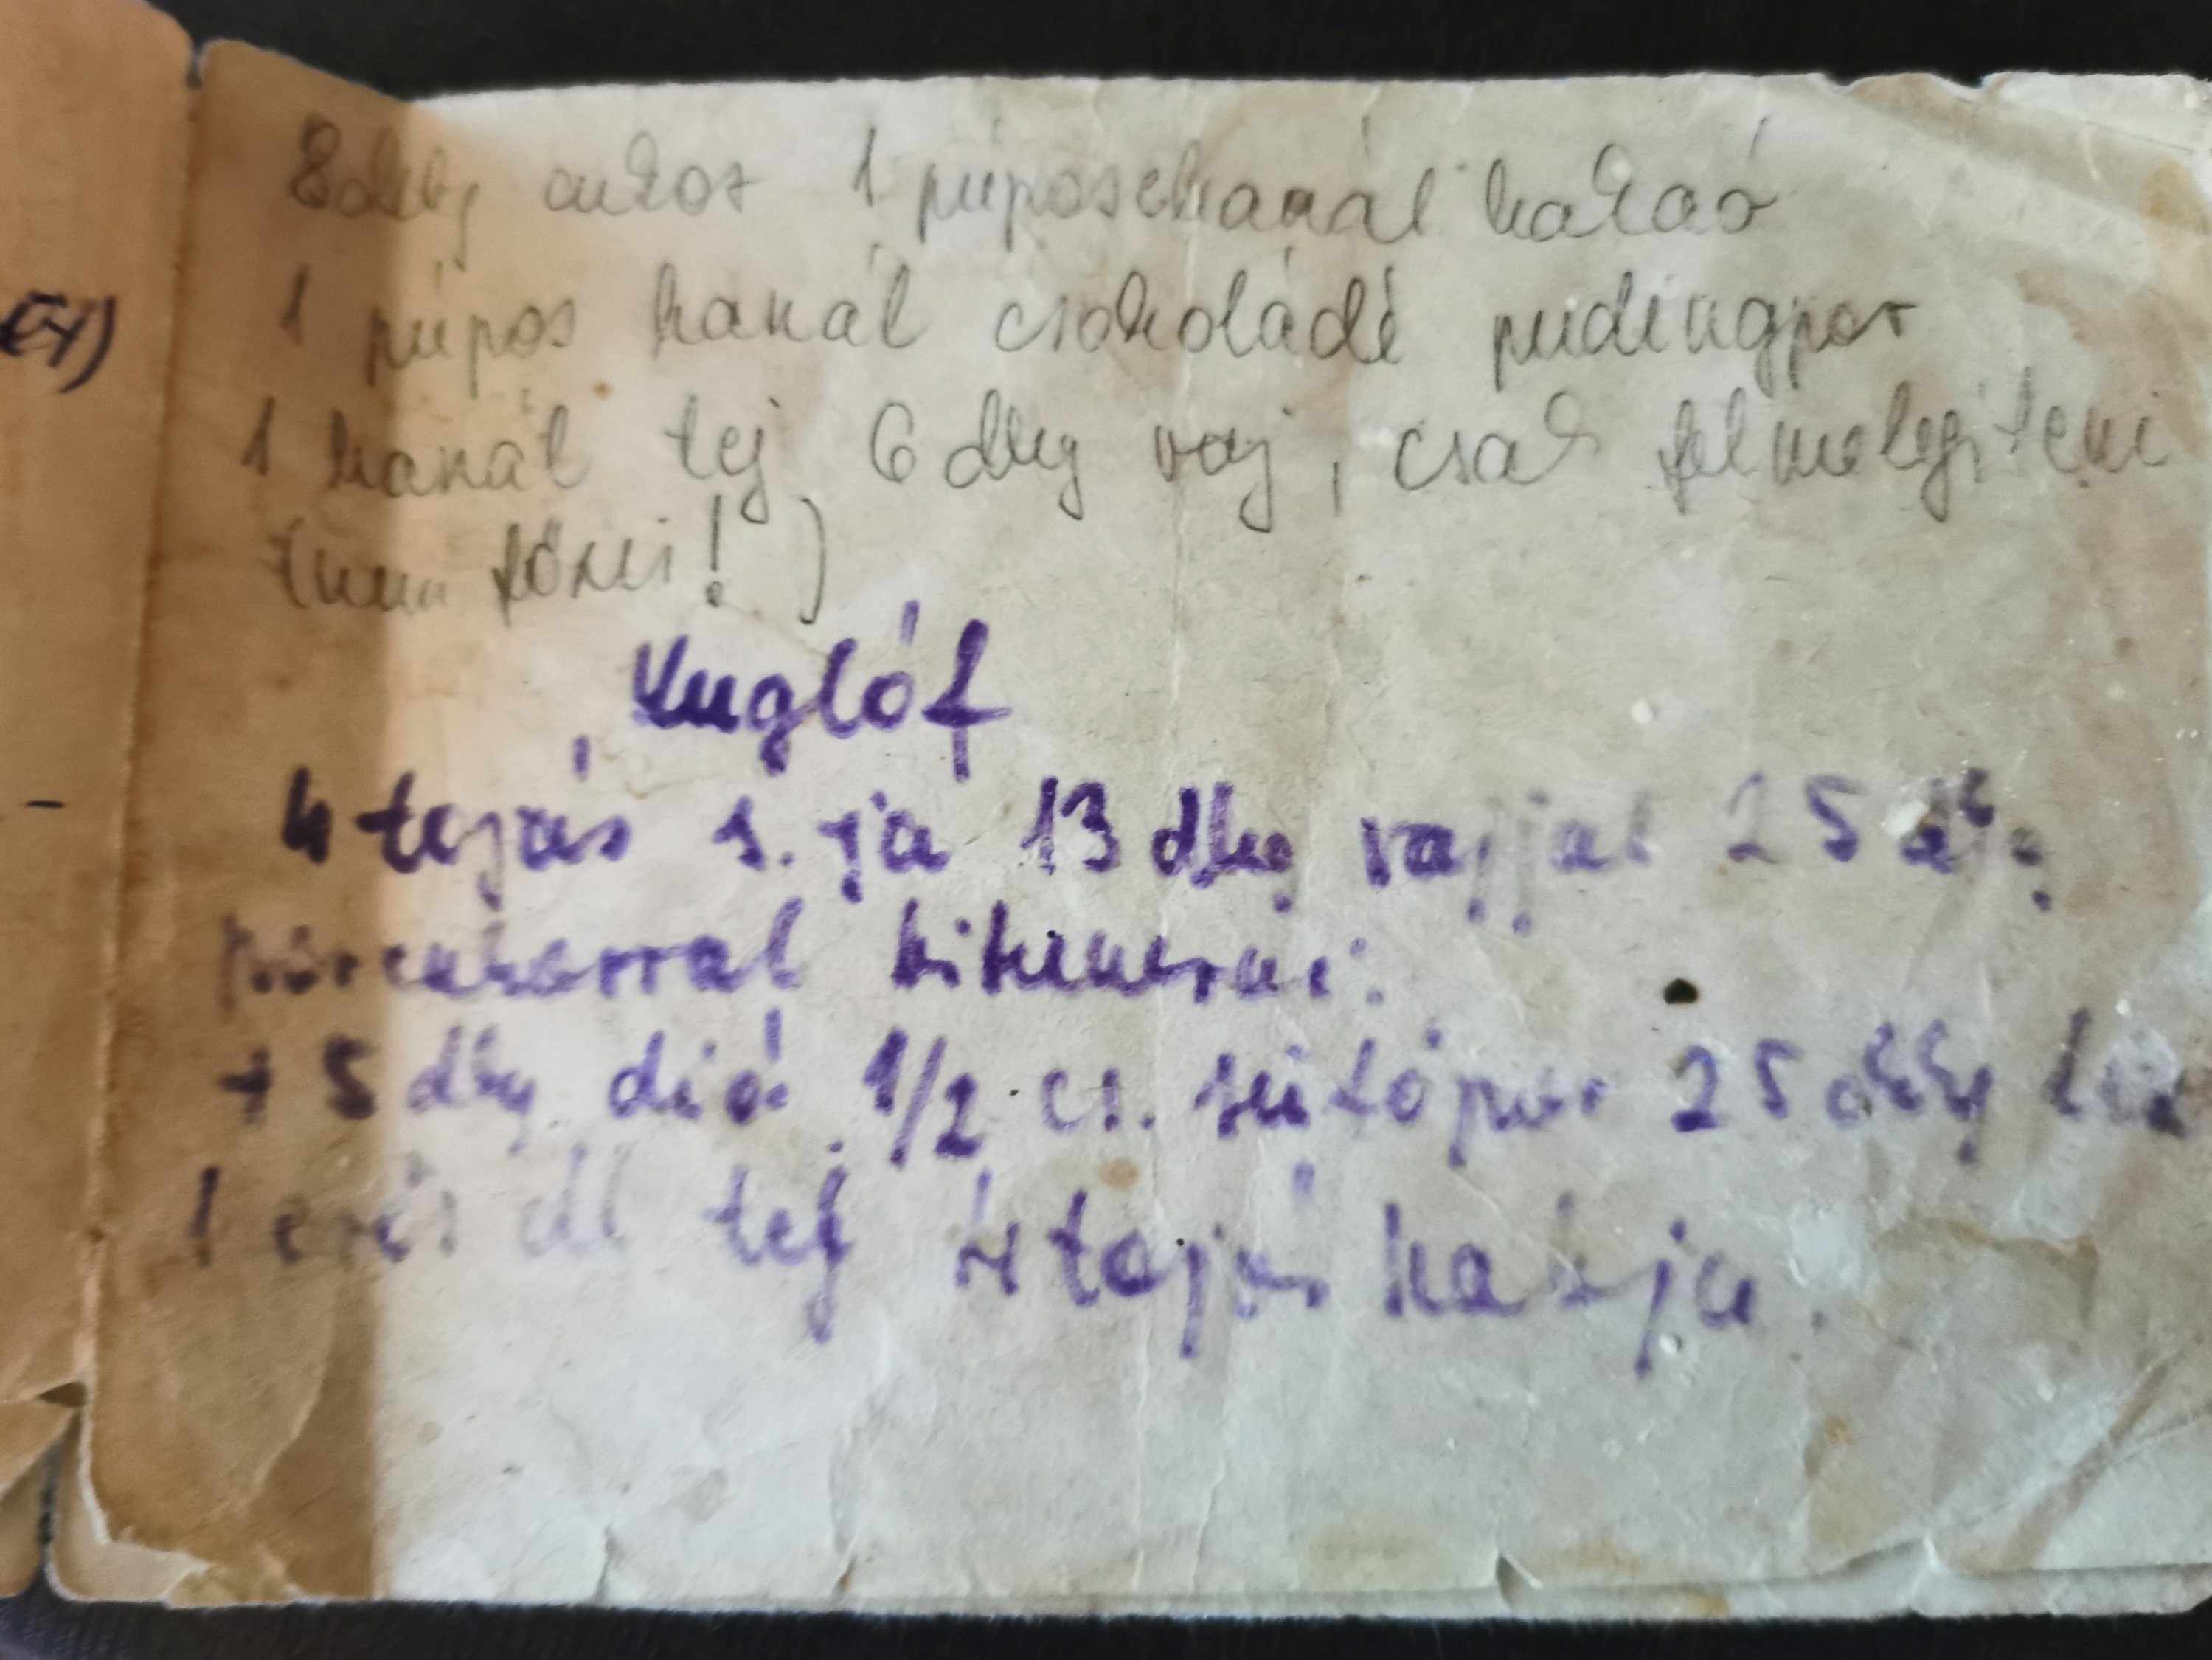 8 dkg cukor 1 púposckanál kakaó
1 púpos kanál csokoládé pudingpor
1 kanál tej 6 dkg vaj, csak felmelegíteni
(nem főzni!)
Kuglóf
4 tojás s. ja 13 dkg vajjal 25 dkg
porcukorral kikeverni:
+ 5 dkg dió 1/2 cs. sütőpor 25 dkg liszt
1 erős dl tej 4 tojás habja.